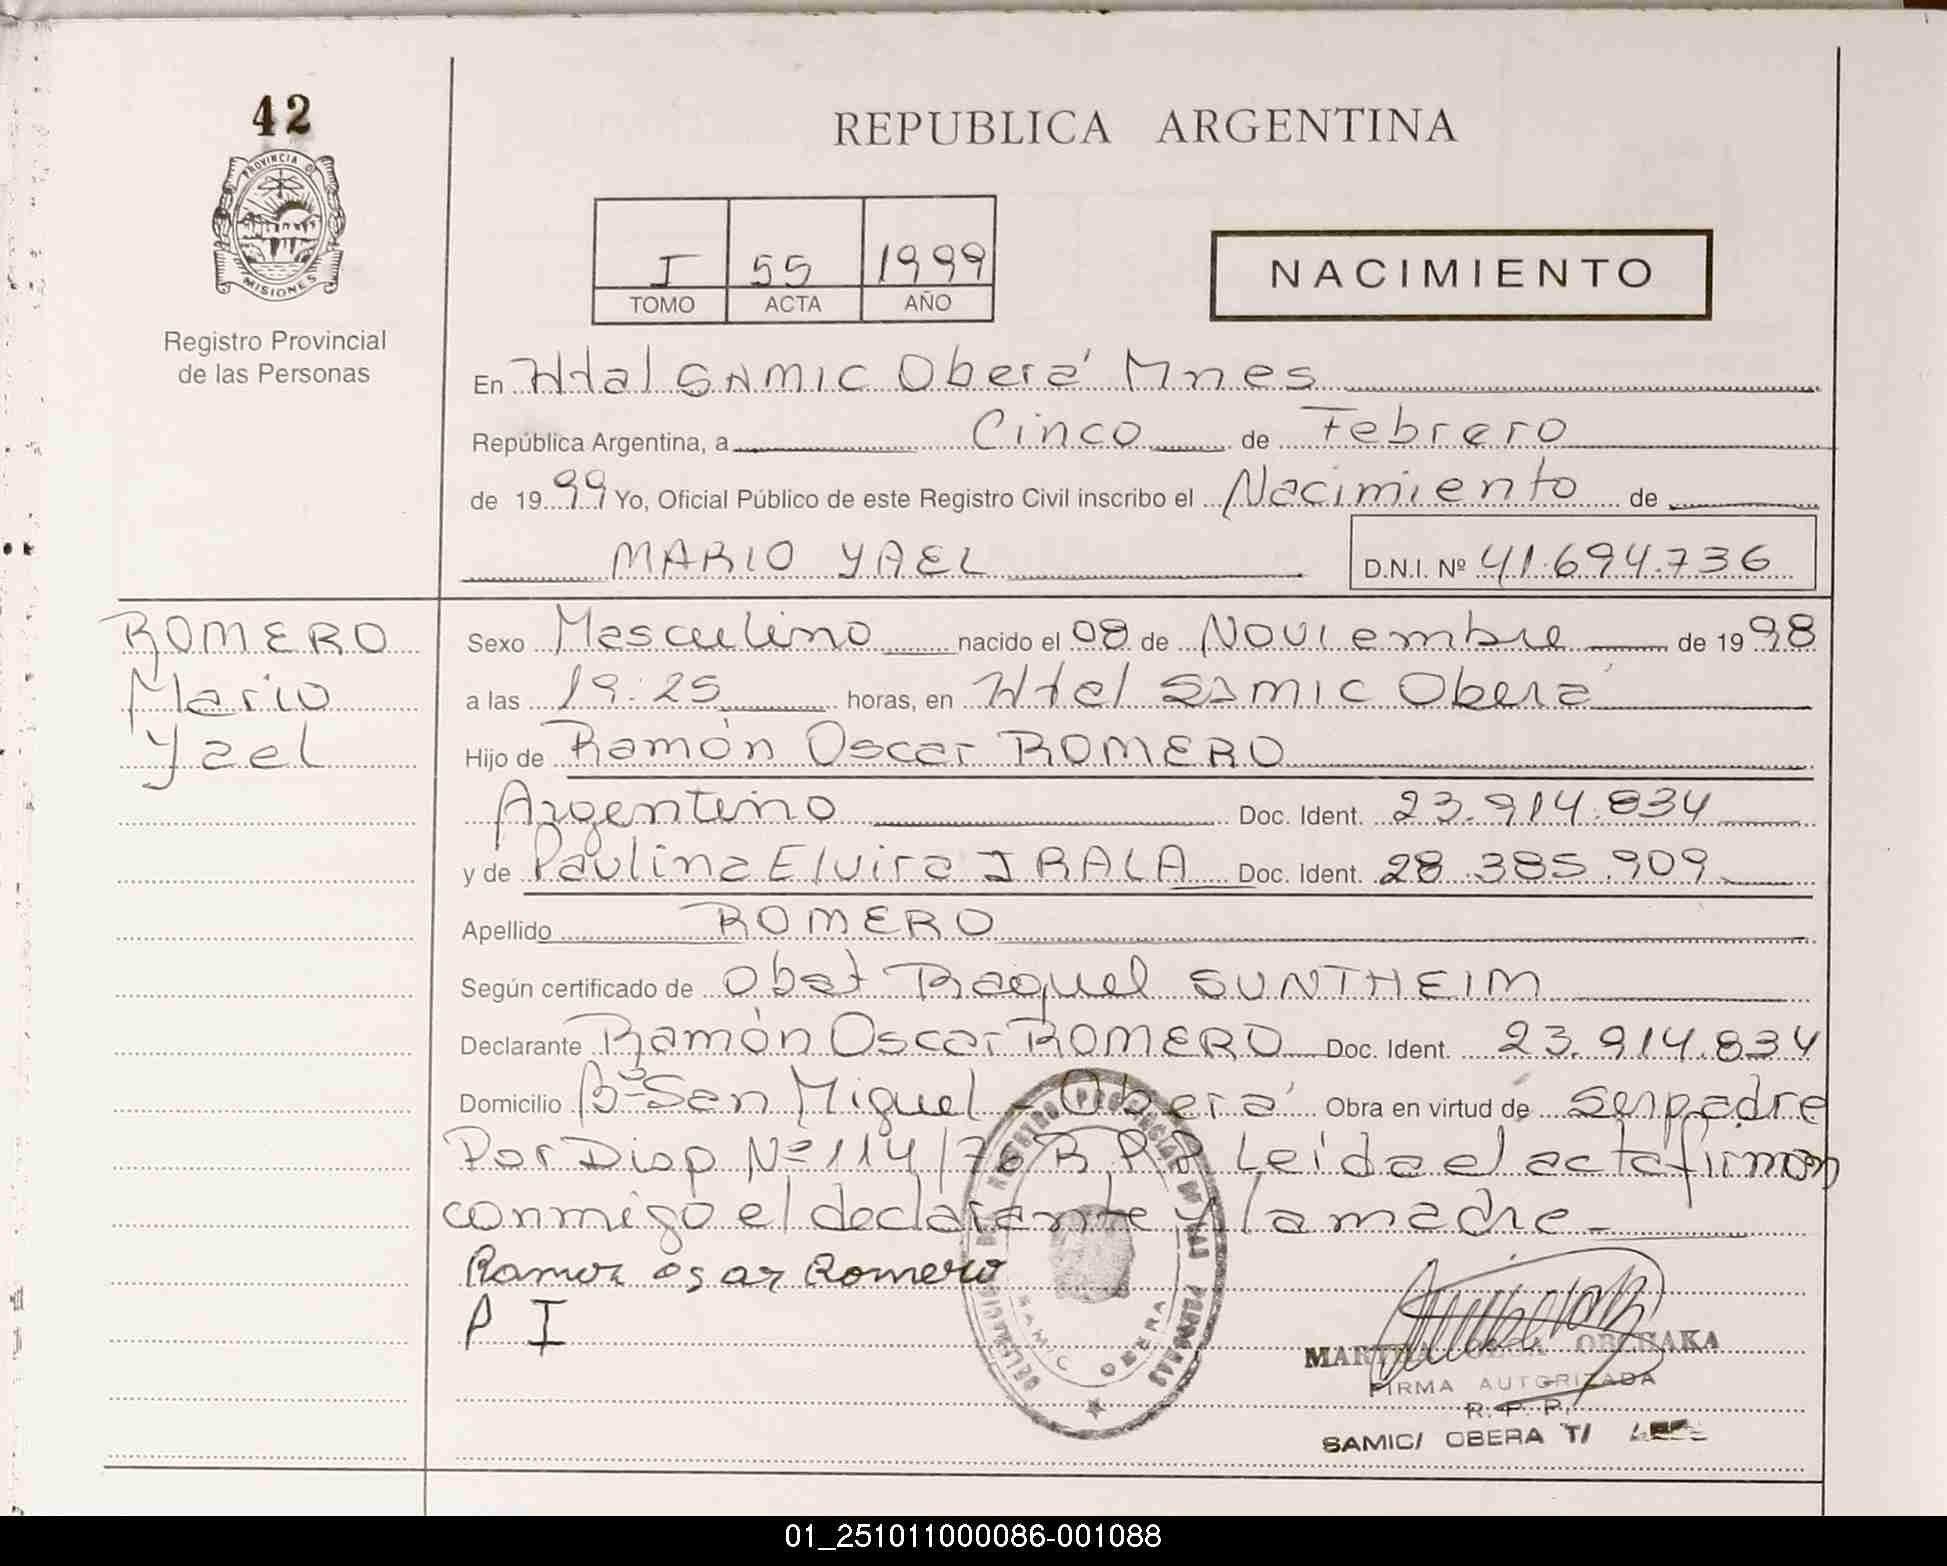 42
PROVINCIA D
MISIONES
Registro Provincial
de las Personas
REPUBLICA ARGENTINA
I 55 1999
TOMO ACTA AÑO
NACIMIENTO
En Htal SAMIC Oberá Mnes
República Argentina, a Cinco de Febrero
de 1999 Yo, Oficial Público de este Registro Civil inscribo el Nacimiento de
MARIO YAEL D.N.I. Nº 41.694.736
ROMERO
Mario
Yael
Sexo Masculino nacido el 08 de Noviembre de 1998
a las 19:25 horas, en Htal SAMIC Oberá
Hijo de Ramón Oscar ROMERO
Argentino Doc. Ident. 23.914.834
y de Paulina Elvira IRALA Doc. Ident. 28.385.909
Apellido ROMERO
Según certificado de Obst Raquel SUNTHEIM
Declarante Ramón Oscar ROMERO Doc. Ident. 23.914.834
Domicilio Bº San Miguel - Oberá Obra en virtud de ser padre
Por Disp Nº 114/76 R.P.P. Leída el acta firman
conmigo el declarante y la madre -
Ramon osar Romero
P I
REGISTRO PROVINCIAL DE LAS PERSONAS
SAMIC OBERA
FIRMA AUTORIZADA
R. P. P.
SAMIC/ OBERA T/
01_251011000086-001088